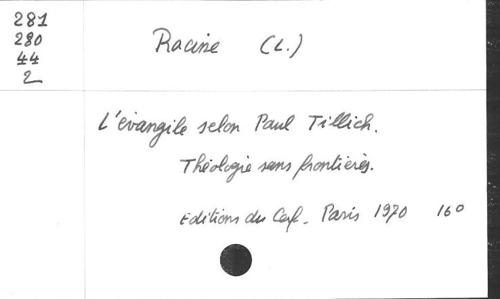 281
280
44
2
Racine (L.)
L'évangile selon Paul Tillich.
Théologie sans frontières.
Editions du Cerf. Paris 1970 16°